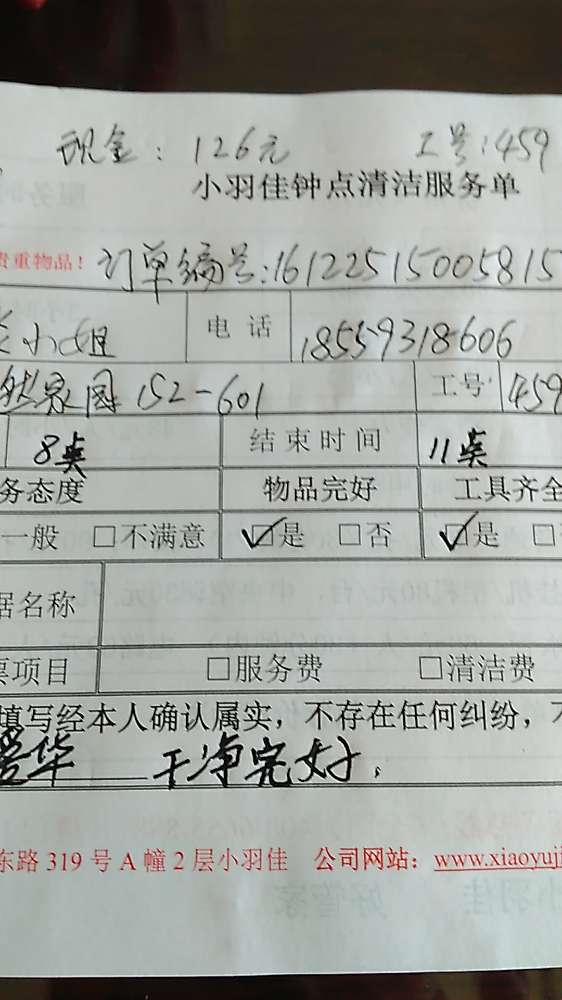 现金：126元 工号：459
小羽佳钟点清洁服务单
贵重物品！ 订单编号：16122515005815
小姐 电话 18559318606
然家园152-601 工号 459
8点 结束时间 11点
务态度 物品完好 工具齐全
一般 □不满意 ☑是 □否 ☑是 □
据名称
票项目 □服务费 □清洁费
填写经本人确认属实，不存在任何纠纷，
华 干净完好，
东路 319 号 A 幢 2 层小羽佳 公司网站：www.xiaoyuji